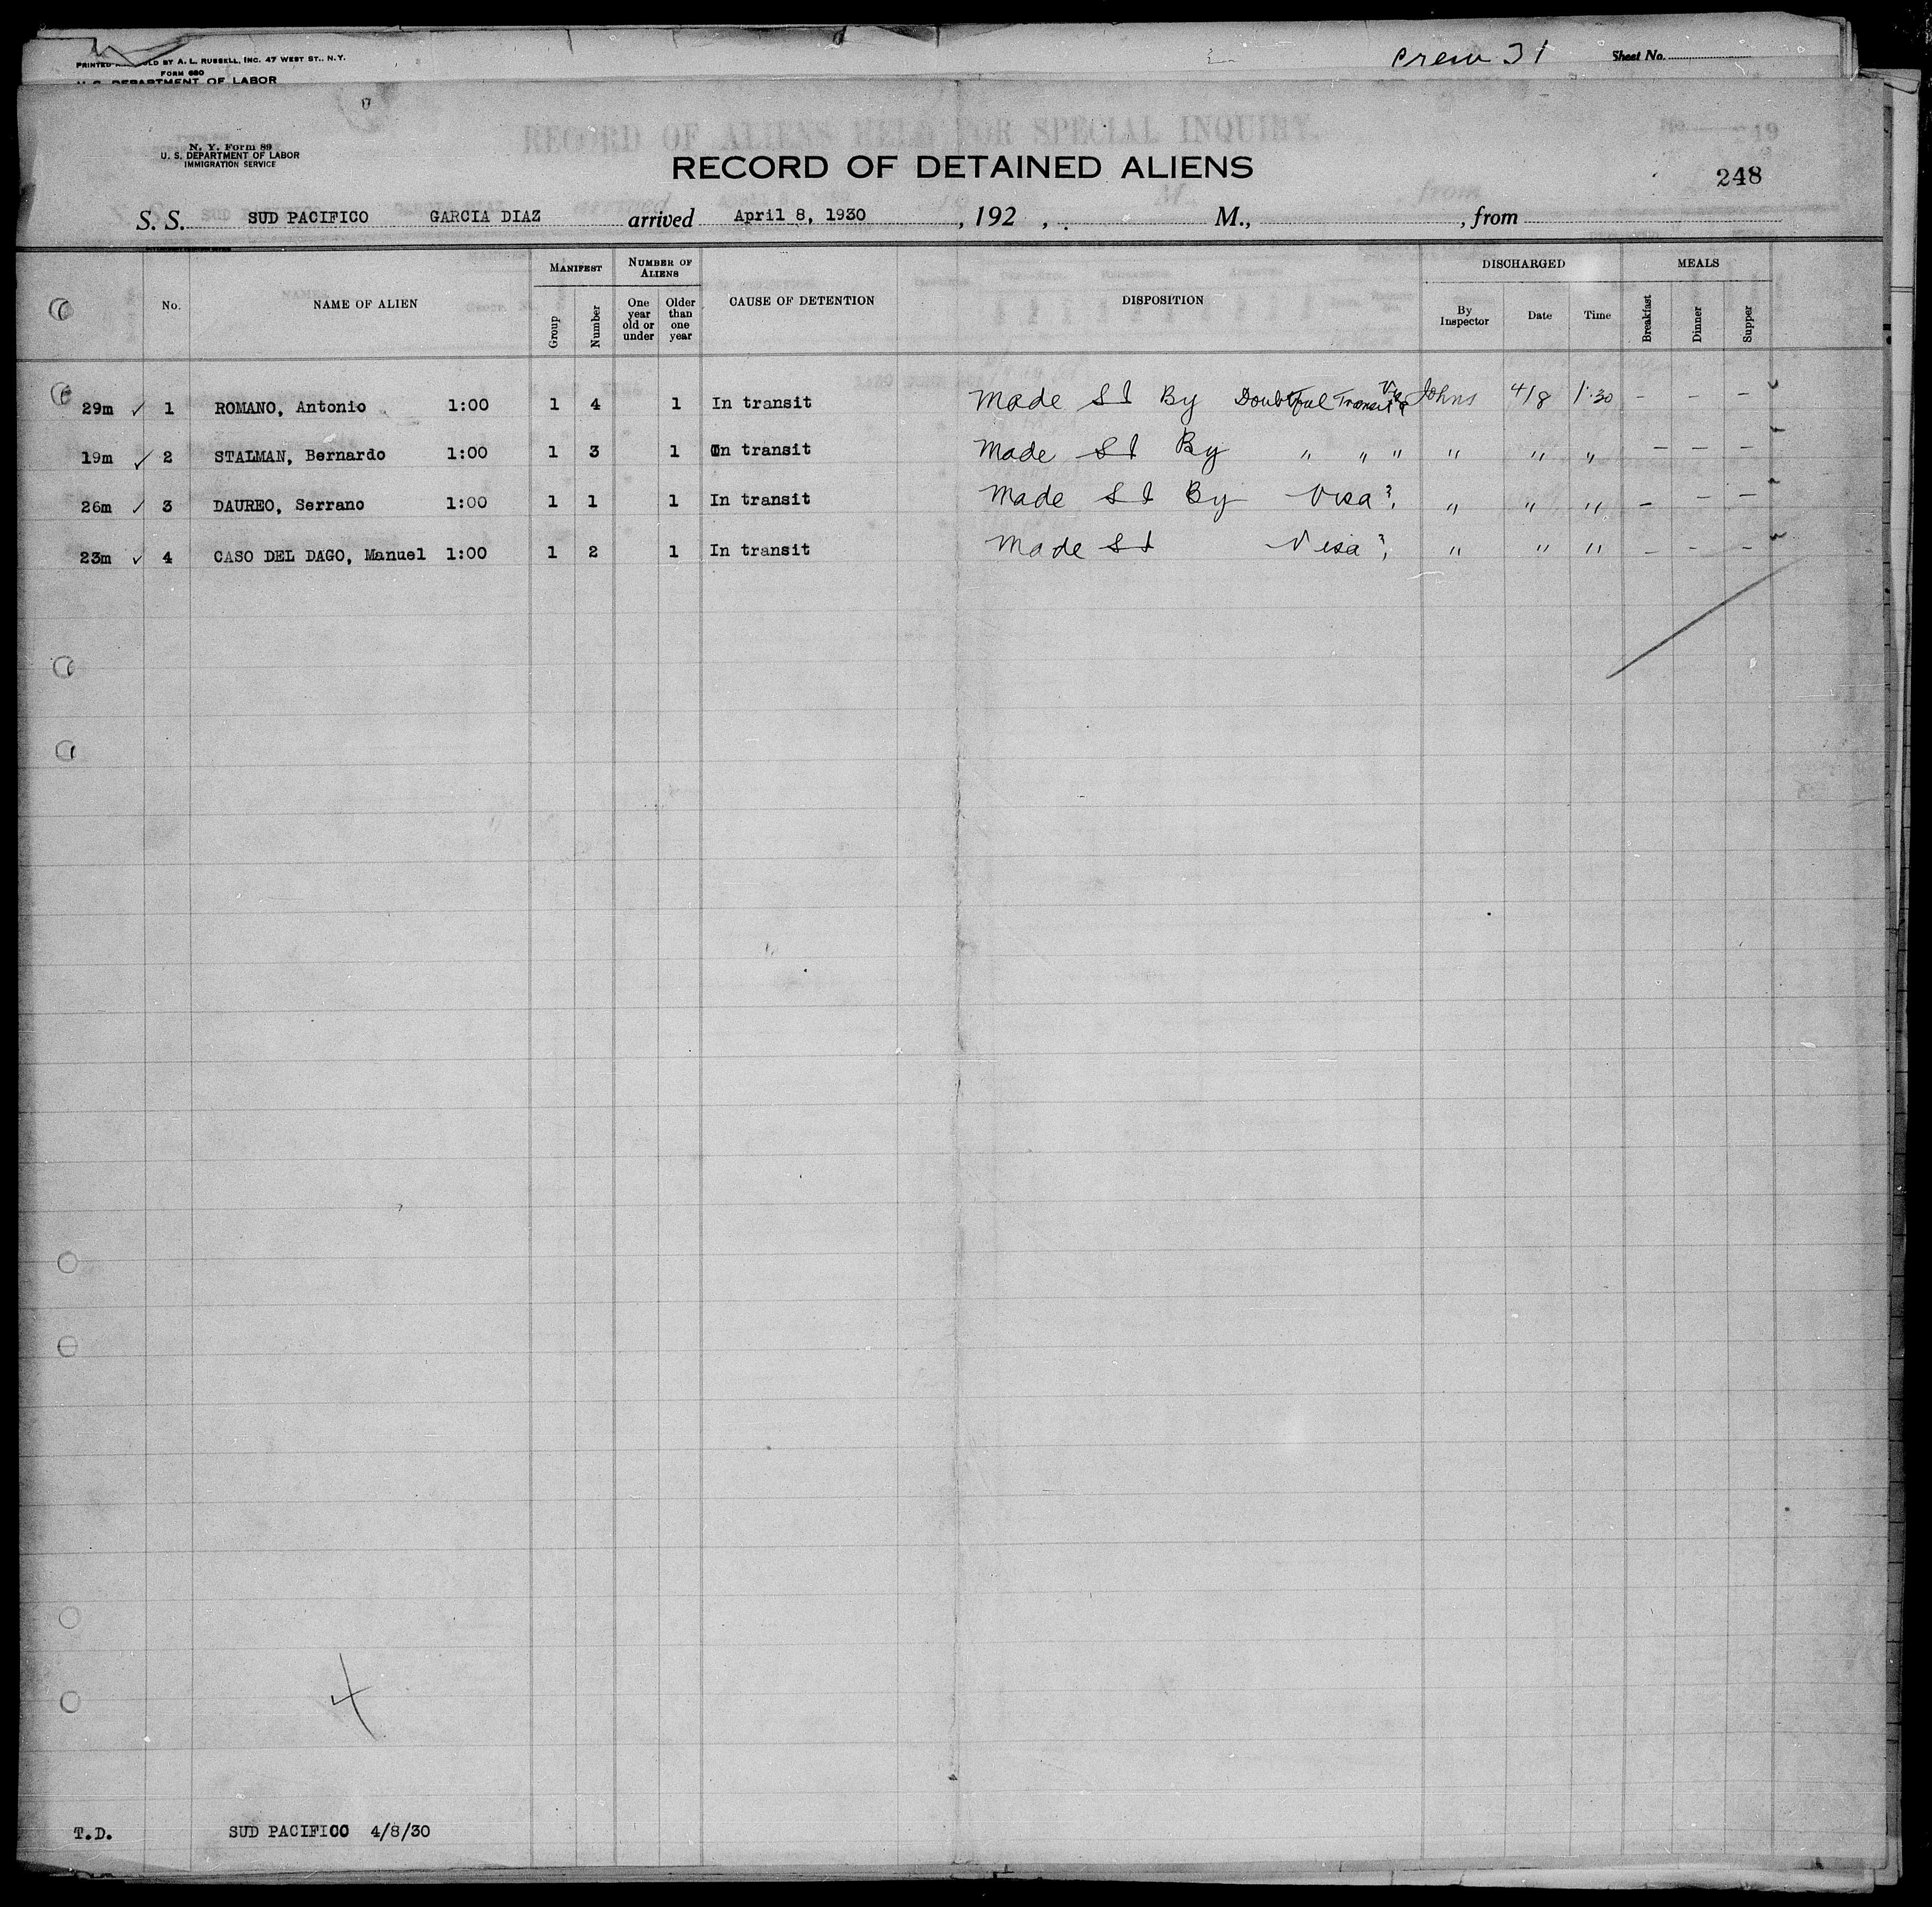 PRINTED OLD BY A. L. RUSSELL, INC. 47 WEST ST., N. Y.
FORM 680
U. S. DEPARTMENT OF LABOR
Crew 31 Sheet No.
RECORD OF ALIENS HELD FOR SPECIAL INQUIRY.
N. Y. Form 89
U. S. DEPARTMENT OF LABOR
IMMIGRATION SERVICE
RECORD OF DETAINED ALIENS
248
S. S. SUD PACIFICO GARCIA DIAZ arrived April 8, 1930 , 192 , M., , from
No. NAME OF ALIEN MANIFEST Group Number NUMBER OF ALIENS One year old or under Older than one year CAUSE OF DETENTION DISPOSITION DISCHARGED By Inspector Date Time MEALS Breakfast Dinner Supper
29m ✓ 1 ROMANO, Antonio 1:00 1 4 1 In transit Made S I By Doubtful Transit Visa Johns 4/8 1:30 - - -
19m ✓ 2 STALMAN, Bernardo 1:00 1 3 1 In transit Made S I By " " " " " " - - -
26m ✓ 3 DAUREO, Serrano 1:00 1 1 1 In transit Made S I By Visa? " " " - - -
23m ✓ 4 CASO DEL DAGO, Manuel 1:00 1 2 1 In transit Made S I Visa? " " " - - -
4
T.D. SUD PACIFICO 4/8/30